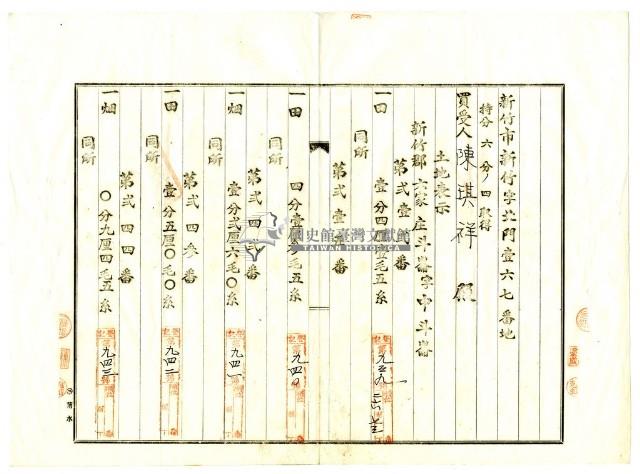 新竹市新竹字北門壹六七番地
持分六分ノ四取得
買受人 陳琪祥
土地表示
新竹郡六家庄斗崙字中斗崙
第弍壹番
一田 壹分四厘壹毛五糸
九五九
同所
第弍壹番
一田 四分壹毛五糸
九四〇
同所
第弍四弍番
一畑 壹分弍厘六毛〇糸
九四一
同所
第弍四参番
一田 壹分五厘〇毛〇糸
九四二
同所
第弍四四番
一畑 〇分九厘四毛五糸
九四三
國史館臺灣文獻館
TAIWAN HISTORICA
清水